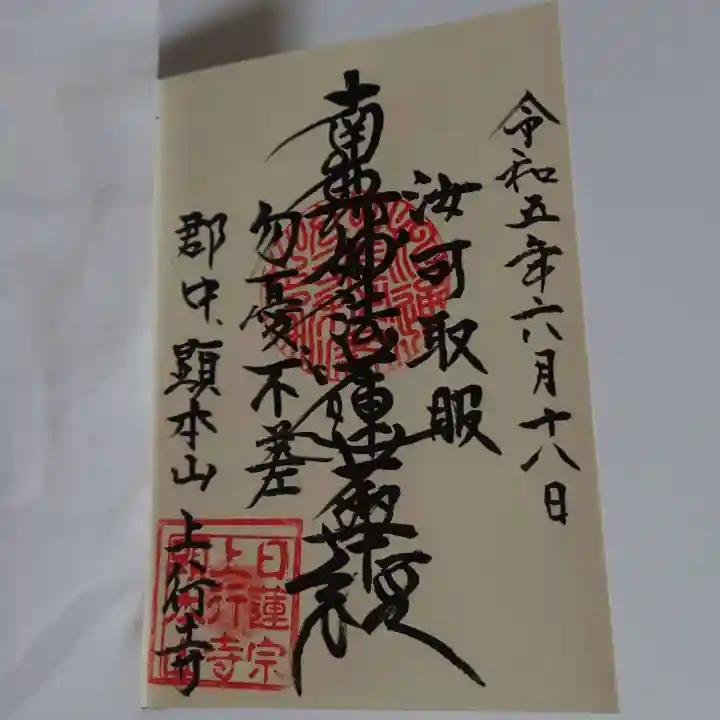 令和五年六月十八日
汝可取服
南無妙法蓮華経
勿憂不差
郡中 顕本山 上行寺
日蓮宗
上行寺